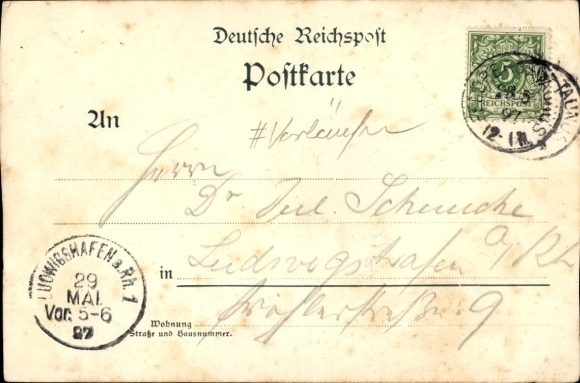 Deutsche Reichspost
Postkarte
5
REICHSPOST
28.5
97
12-1N.
An
Herrn
Dr Jul. Schuncke
Ludwigshafen a/Rh
in
9
Wohnung
Straße und Hausnummer.
LUDWIGSHAFEN a. Rh. 1
29
MAI.
Vor. 5-6
97